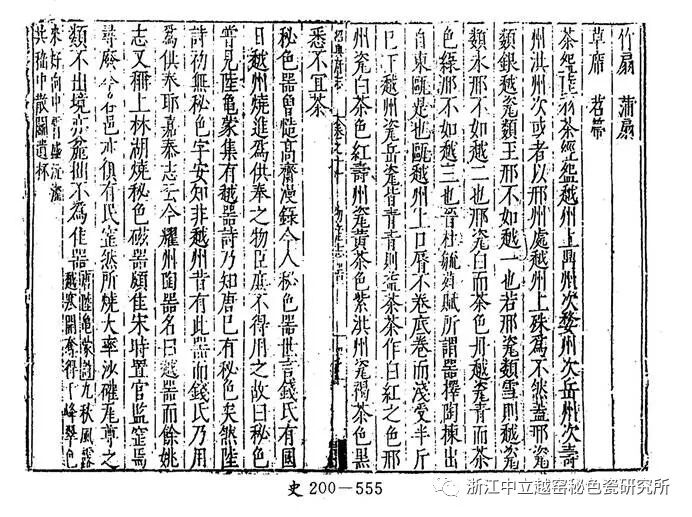 竹扇 蒲扇
草席 苕帚
茶碗 茶經盌越州上鼎州次婺州次岳州次壽
州洪州次或者以邢州處越州上殊為不然蓋邢瓷
類銀越瓷類玉邢不如越一也若邢瓷類雪則越瓷
類氷邢不如越二也邢瓷白而茶色丹越瓷青而茶
色綠邢不如越三也晉杜毓荈賦所謂器擇陶揀出
自東甌是也甌越州上口脣不卷底卷而淺受半斤
已下越州瓷岳瓷皆青青則益茶茶作白紅之色邢
州瓷白茶色紅壽州瓷黃茶色紫洪州瓷褐茶色黑
紹興府志 卷之十 物產志 器
悉不宜茶
秘色器曾慥高齋漫錄今人秘色器世言錢氏有國
日越州燒進為供奉之物臣庶不得用之故曰秘色
嘗見陸龜蒙集有越器詩乃知唐已有秘色矣然陸
詩初無秘色字安知非越州昔有此器而錢氏乃用
為供奉耶嘉泰志云今耀州陶器名曰越器而餘姚
志又稱上林湖燒秘色磁器頗佳宋時置官監窑焉
尋廢今吾邑亦復有民窑然所燒大率沙礶瓦尊之
類不出境亦麤拙不為佳器 唐陸龜蒙詩九秋風露
越窑開奪得千峰翠色
來好向中宵盛沆瀣
共嵇中散鬭遺杯
史 200—555
浙江中立越窑秘色瓷研究所